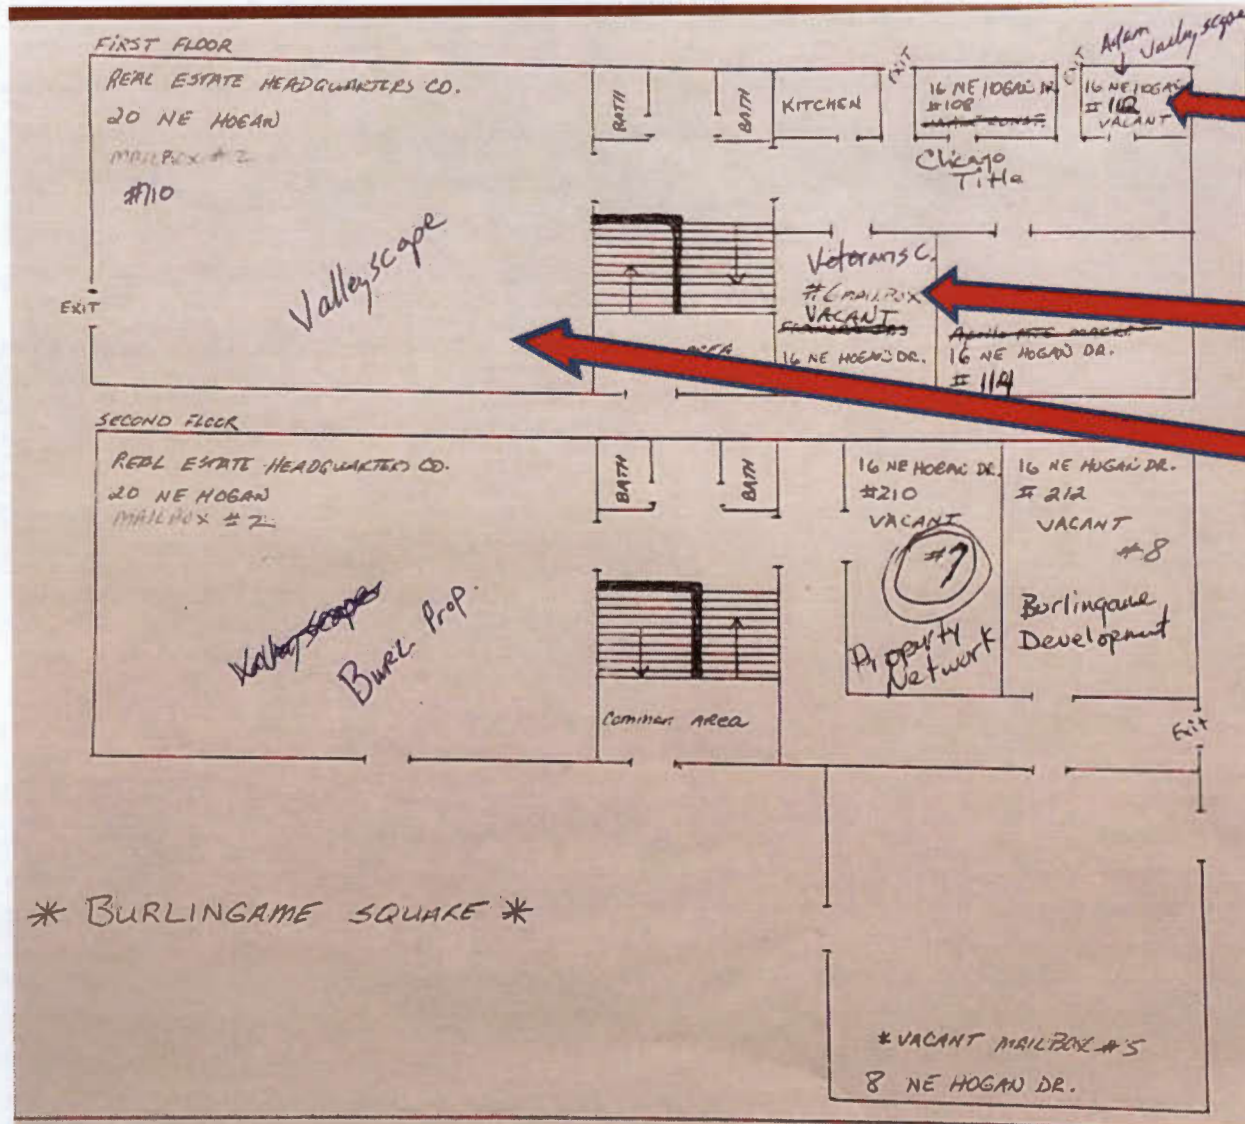 FIRST FLOOR
REAL ESTATE HEADQUARTERS CO.
20 NE HOGAN
MAILBOX # 2
#710
Valleyscape
EXIT
BATH
BATH
KITCHEN
EXIT
16 NE HOGAN DR.
#108
Chicago
Title
EXIT
Adam
Valleyscape
16 NE HOGAN
# 112
VACANT
Veterans C.
#6 MAILBOX
VACANT
16 NE HOGAN DR.
16 NE HOGAN DR.
# 114
AREA
SECOND FLOOR
REAL ESTATE HEADQUARTERS CO.
20 NE HOGAN
MAILBOX # 2
Valleyscape
Burl Prop.
BATH
BATH
Common Area
16 NE HOGAN DR.
#210
VACANT
#7
Property
Network
16 NE HOGAN DR.
# 212
VACANT
#8
Burlingame
Development
Exit
* BURLINGAME SQUARE *
* VACANT MAILBOX #5
8 NE HOGAN DR.